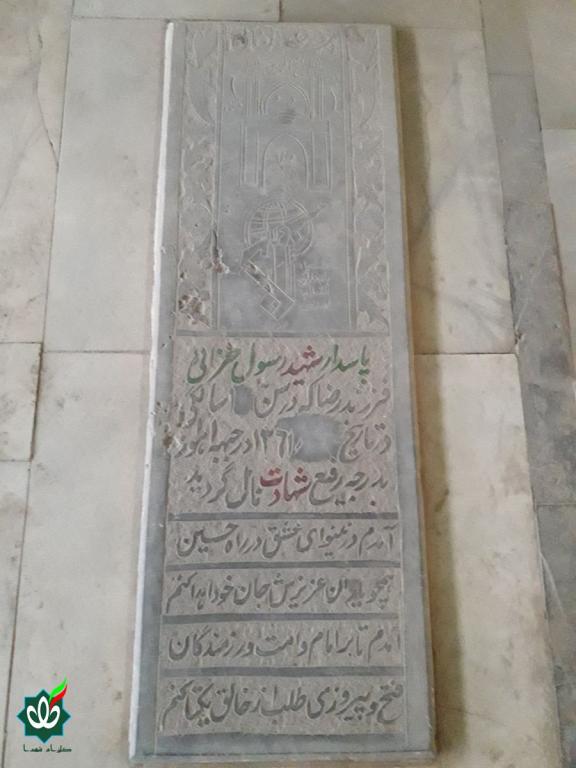 پاسدار شهید رسول خزائی
فرزند رضا که در سن سالگی
در تاریخ ۱۳۶۱ در جبهه اهواز
بدرجه رفیع شهادت نائل گردید
آمدم در نینوای عشق در راه حسین
همچو یاران عزیزش جان خود اهدا کنم
آمدم تا بر امام و امت و رزمندگان
فتح و پیروزی طلب از خالق یکتا کنم